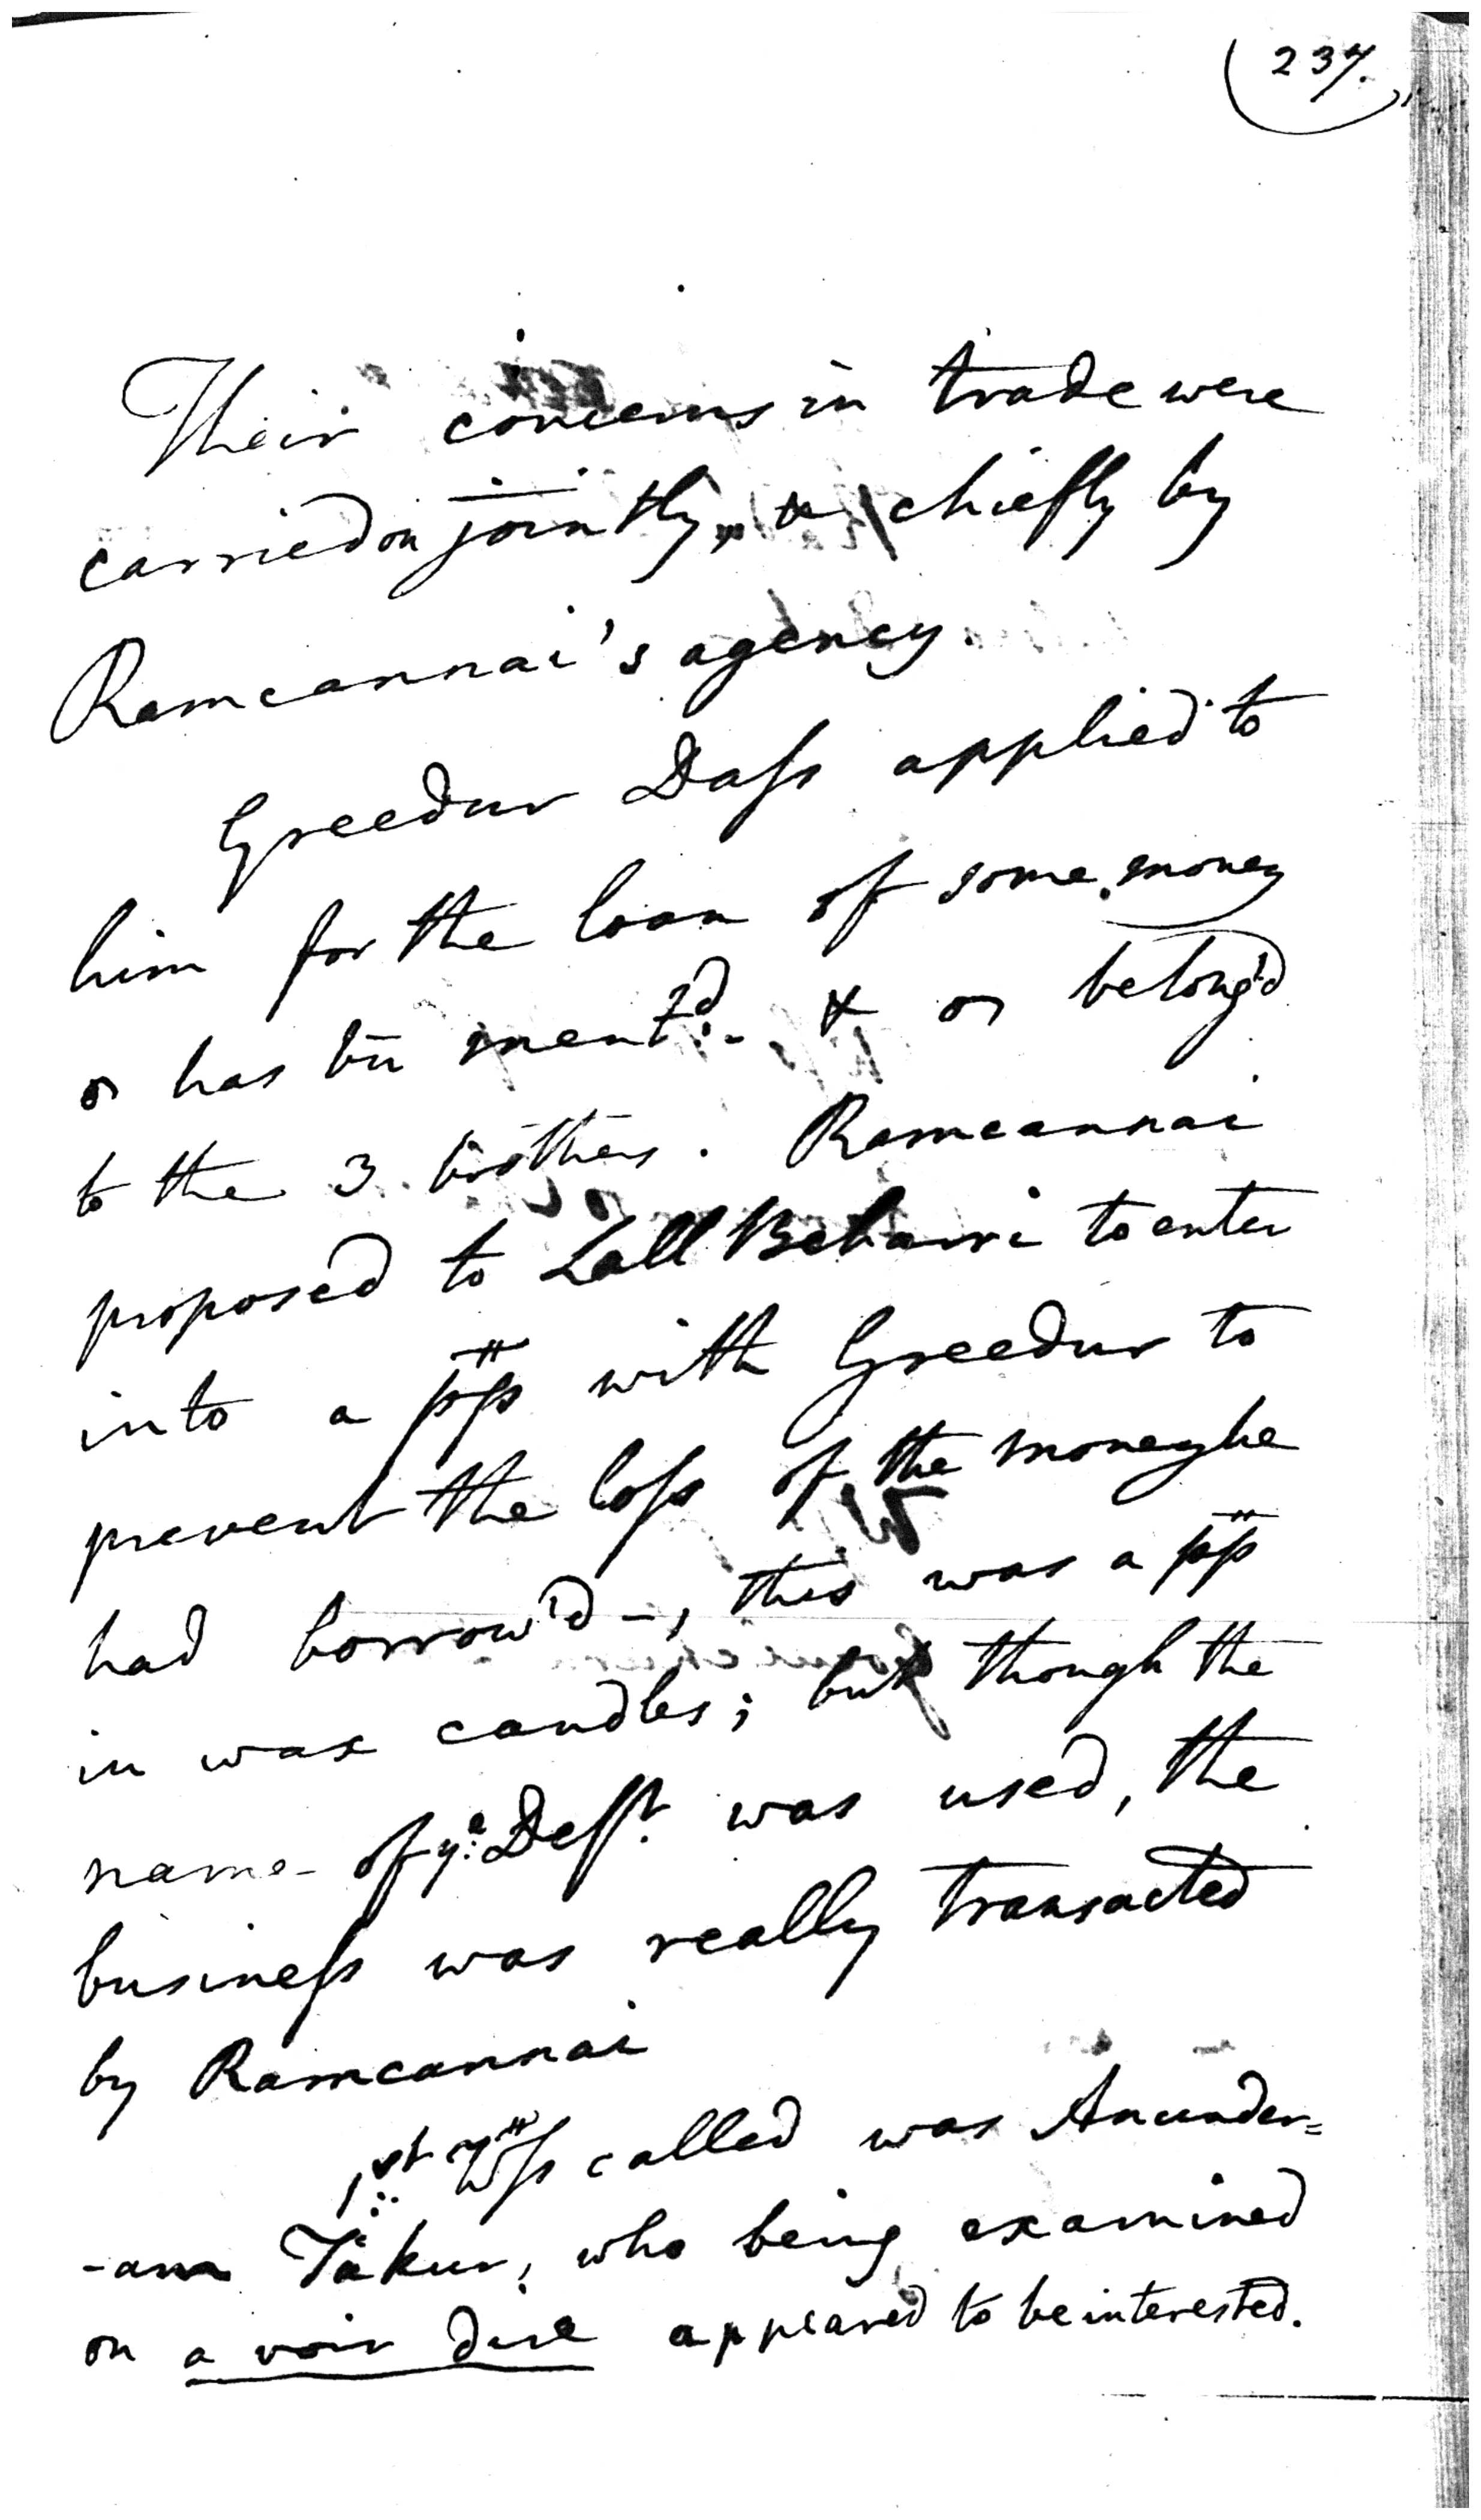 237.
Their concerns in trade were
carried on jointly, & chiefly by
Ramcannai's agency.
Greedur Dass applied to
him for the loan of some money
as has bn̄ ment^d. & as belong'd
to the 3 brothers. Ramcannai
proposed to Lall Behari to enter
into a pp with Greedur to
prevent the loss of the money he
had borrow'd -, this was a pp
in wax candles; but though the
name of y^e Def^t. was used, the
business was really transacted
by Ramcannai
1^st Wss called was Anunder=
-am Takur, who being examined
on a voir dire appeared to be interested.